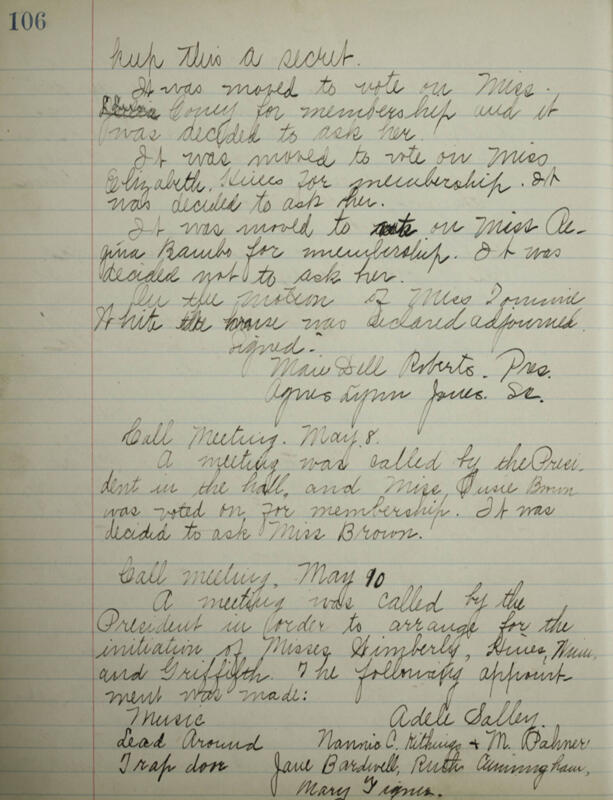 106
keep this a secret.
It was moved to vote on Miss.
Coney for membership and it
was decided to ask her.
It was moved to vote on Miss
Elizabeth Hines for membership. It
was decided to ask her.
It was moved to on Miss Re-
gina Rambo for membership. It was
decided not to ask her.
On the motion of Miss Tommie
White the house was declared adjourned.
Signed:-
Marie Dell Roberts. Pres.
Agnes Lynn Jones. Sc.
Call Meeting. May 8.
A meeting was called by the Presi-
dent in the hall, and Miss Susie Brown
was voted on for membership. It was
decided to ask Miss Brown.
Call meeting, May 10
A meeting was called by the
President in order to arrange for the
initiation of Misses Wimberly, Hines,
and Griffith. The following appoint-
ment was made:
Music Adele Salley.
Lead Around Nannie C. & M. Palmer
Trap door Jane Bardwell, Ruth Cunningham,
Mary Tigner.